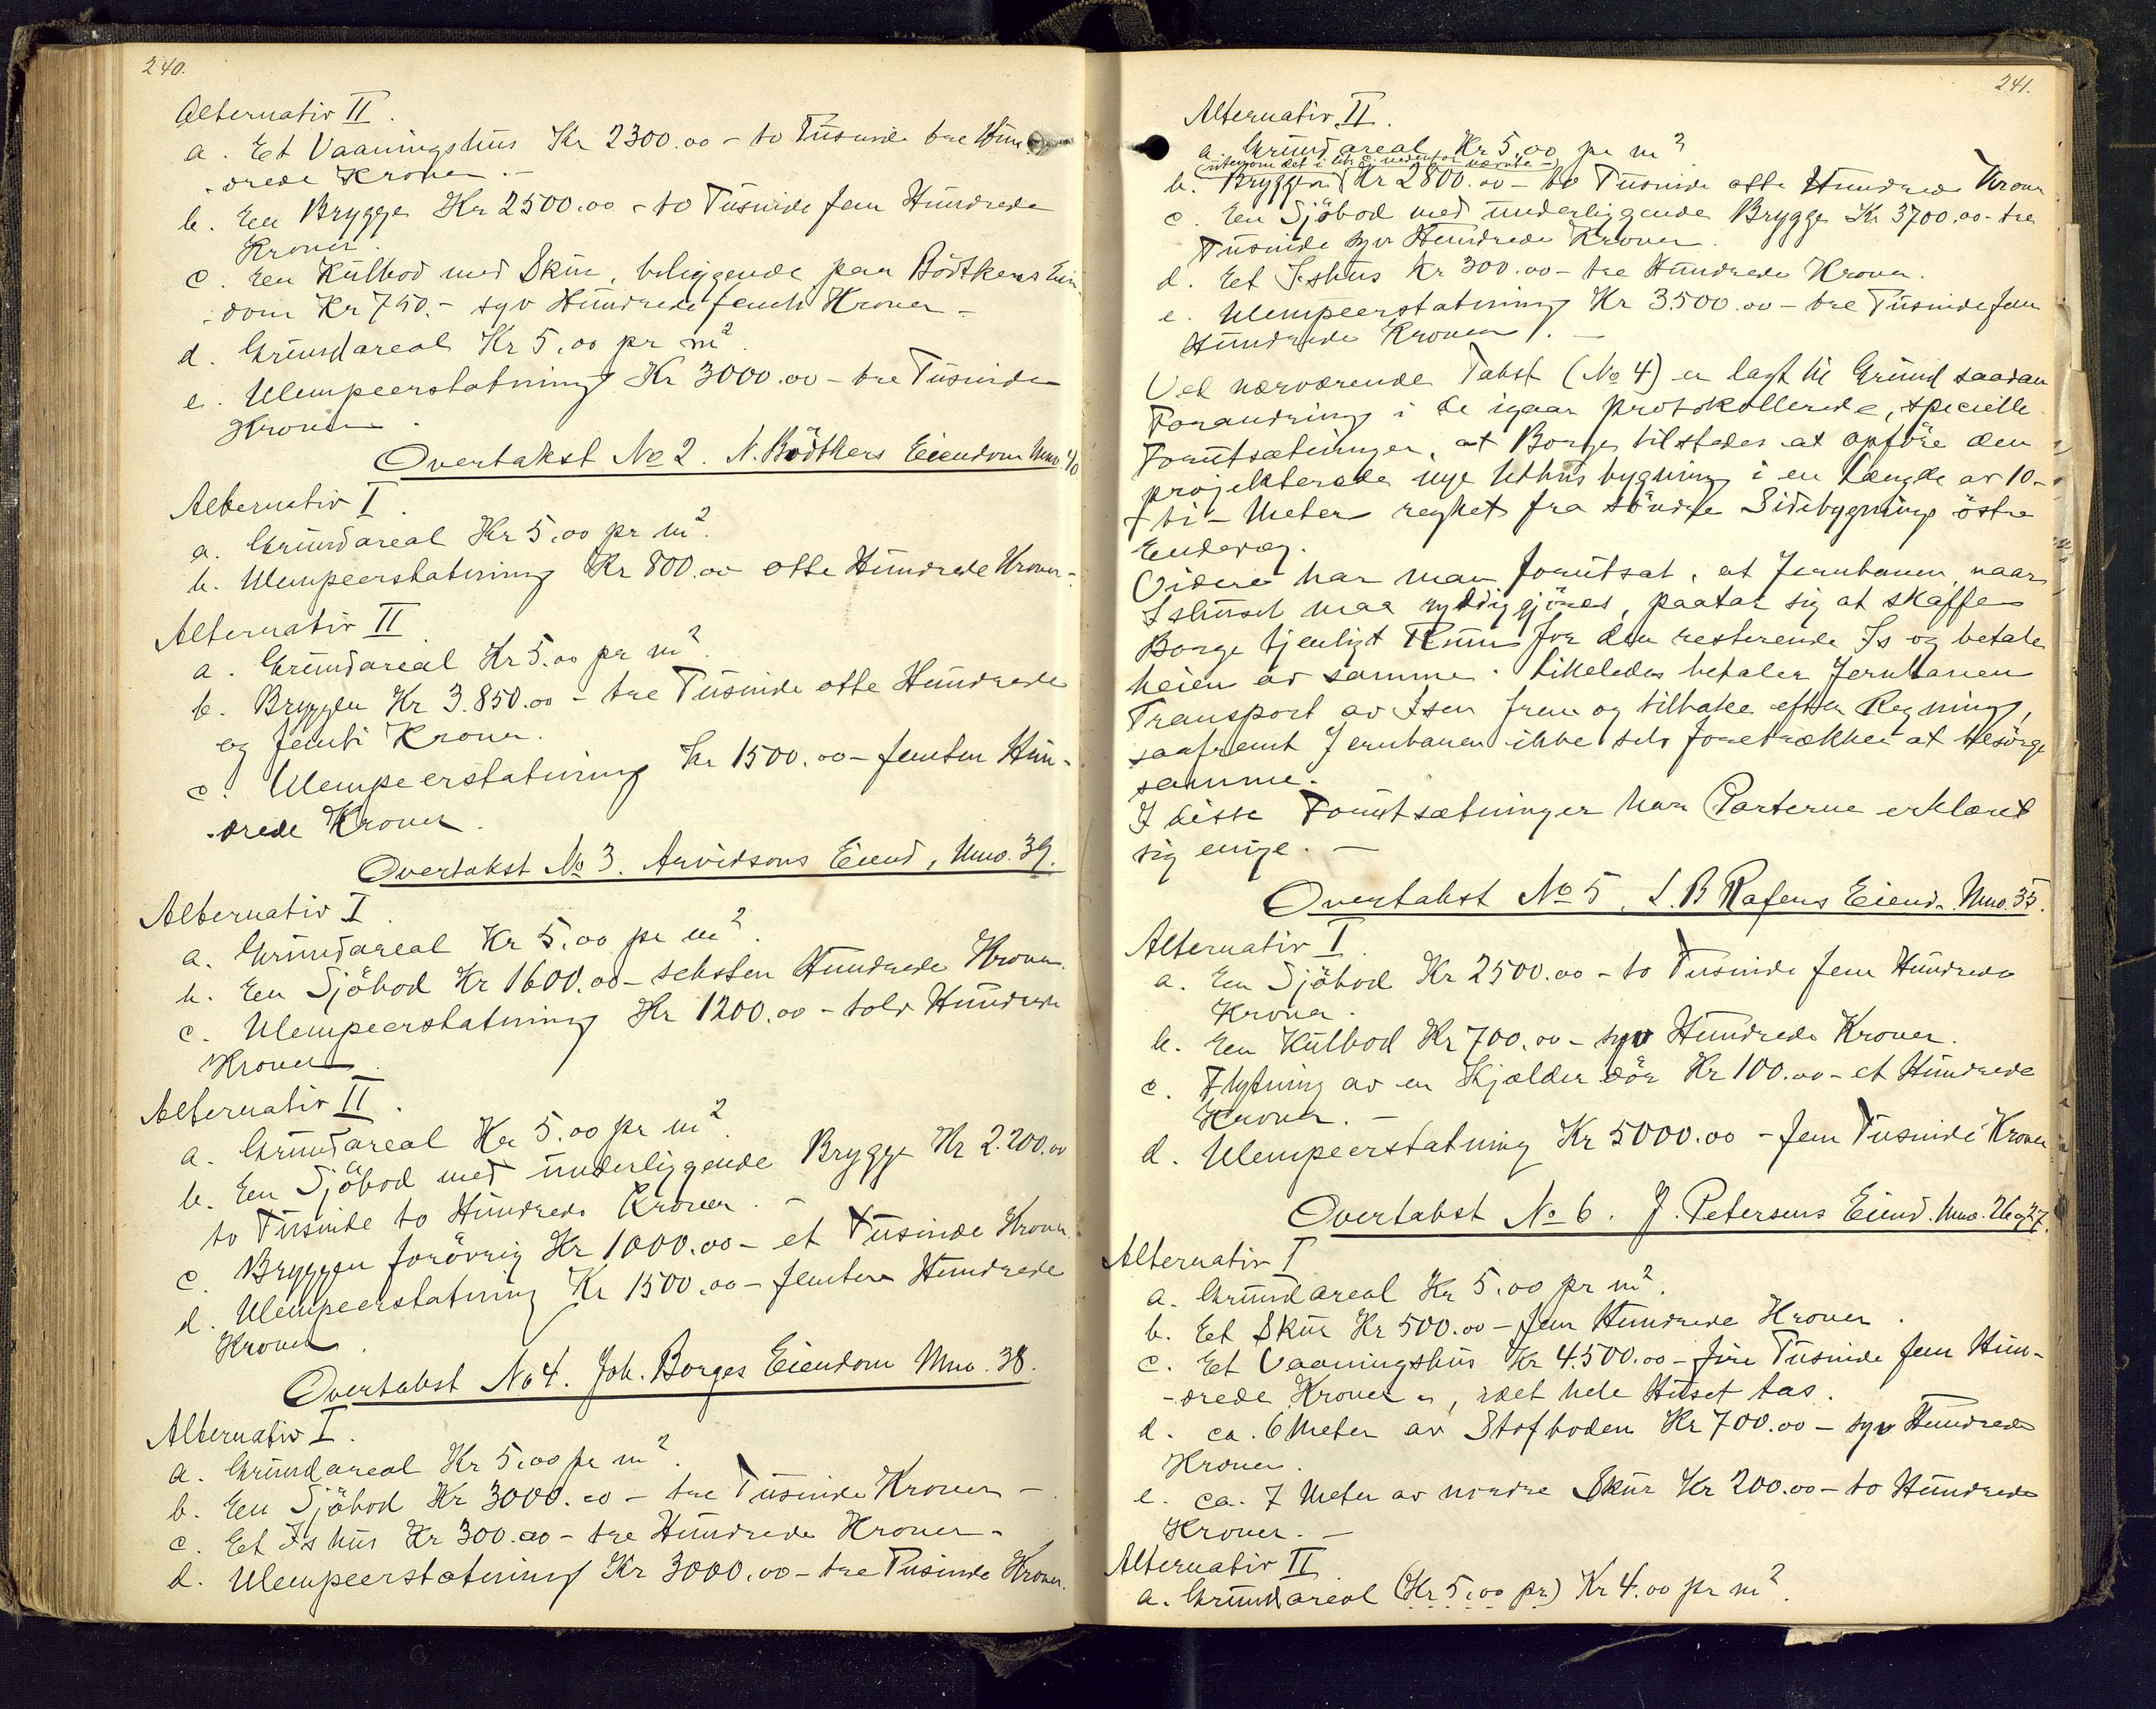 240.
Alternativ II.
a. Et Vaaningshus Kr 2300.00 - to Tusinde tre Hun
-drede Kroner. -
b. En Brygge Kr 2500.00 - to Tusinde fem Hundrede
Kroner.
c. En Kulbod med Skur, beliggende paa Bödtkers Eien
-dom Kr 750.- syv Hundrede femti Kroner -
d. Grundareal Kr 5,00 pr m².
e. Ulempeerstatning Kr 3000.00 - tre Tusinde
Kroner.
Overtakst No 2. N. Bödtkers Eiendom Mno. 40
Alternativ I.
a. Grundareal Kr 5,00 pr m².
b. Ulempeerstatning Kr 800.00 otte Hundrede Kroner -
Alternativ II.
a. Grundareal Kr 5.00 pr m².
b. Bryggen Kr 3.850.00 - tre Tusinde otte Hundrede
og femti Kroner.
c. Ulempeerstatning Kr 1500.00 - femten Hun-
-drede Kroner.
Overtakst No 3. Arvidsons Eiend, Mno. 39.
Alternativ I.
a. Grundareal Kr 5,00 pr m².
b. En Sjöbod Kr 1600.00 - seksten Hundrede Kroner.
c. Ulempeerstatning Kr 1200.00 - tolv Hundrede
Kroner.
Alternativ II.
a. Grundareal Kr 5.00 pr m².
b. En Sjöbod med underliggende Brygge Kr 2.200.00
to Tusinde to Hundrede Kroner. -
c. Bryggen forövrig Kr 1000.00 - et Tusinde Kroner.
d. Ulempeerstatning Kr 1500.00 - femten Hundrede
Kroner.
Overtakst No 4. Joh. Borges Eiendom Mno. 38.
Alternativ I.
a. Grundareal Kr 5,00 pr m².
b. En Sjöbod Kr 3000.00 - tre Tusinde Kroner -
c. Et Ishus Kr 300.00 - tre Hundrede Kroner -
d. Ulempeerstatning Kr 3000.00 - tre Tusinde Kroner.
241.
Alternativ II.
a. Grundareal, Kr 5.00 pr m².
(utenom det i litr c. nedenfor nævnte -)
b. Bryggen Kr 2800.00 - to Tusinde otte Hundrede Kroner
c. En Sjöbod med underliggende Brygge Kr 3700.00 - tre
Tusinde syv Hundrede Kroner.
d. Et Ishus Kr 300.00 - tre Hundrede Kroner.
e. Ulempeerstatning Kr 3500.00 - tre Tusinde fem
Hundrede Kroner. -
Ved nærværende Takst (No 4) er lagt til Grund saadan
Forandring i de igaar protokollerede, specielle
Forutsætninger, at Borge tilstedes at opföre den
projekterede nye Uthusbygning i en Længde av 10-
-ti - Meter regnet fra söndre Sidebygnings östre
Endevæg.
Videre har man forutsat, at Jernbanen, naar
Ishuset maa ryddiggjöres, paatar sig at skaffe
Borge tjenligt Rum for den resterende Is og betale
leien av samme. Likeledes betaler Jernbanen
Transport av Isen frem og tilbake efter Regning,
saafremt Jernbanen ikke selv foretrækker at besörge
samme.
I disse Forutsætninger har Parterne erklæret
sig enige. -
Overtakst No 5, L. B Rafens Eiend. Mno. 35.
Alternativ I.
a. En Sjöbod Kr 2500.00 - to Tusinde fem Hundrede
Kroner.
b. En Kulbod Kr 700.00 - syv Hundrede Kroner.
c. Flytning av en Kjælderdör Kr 100.00 - et Hundrede
Kroner. -
d. Ulempeerstatning Kr 5000.00 - fem Tusinde Kroner
Overtakst No 6. J. Petersens Eiend. Mno. 26 og 27.
Alternativ I
a. Grundareal Kr 5.00 pr m².
b. Et Skur Kr 500.00 - fem Hundrede Kroner.
c. Et Vaaningshus Kr 4.500.00 - fire Tusinde fem Hun-
-drede Kroner -, idet hele Huset tas.
d. ca. 6 Meter av Stofboden Kr 700.00 - syv Hundrede
Kroner.
e. ca. 7 Meter av nordre Skur Kr 200.00 - to Hundrede
Kroner. -
Alternativ II
a. Grundareal (Kr 5,00 pr) Kr 4.00 pr m².